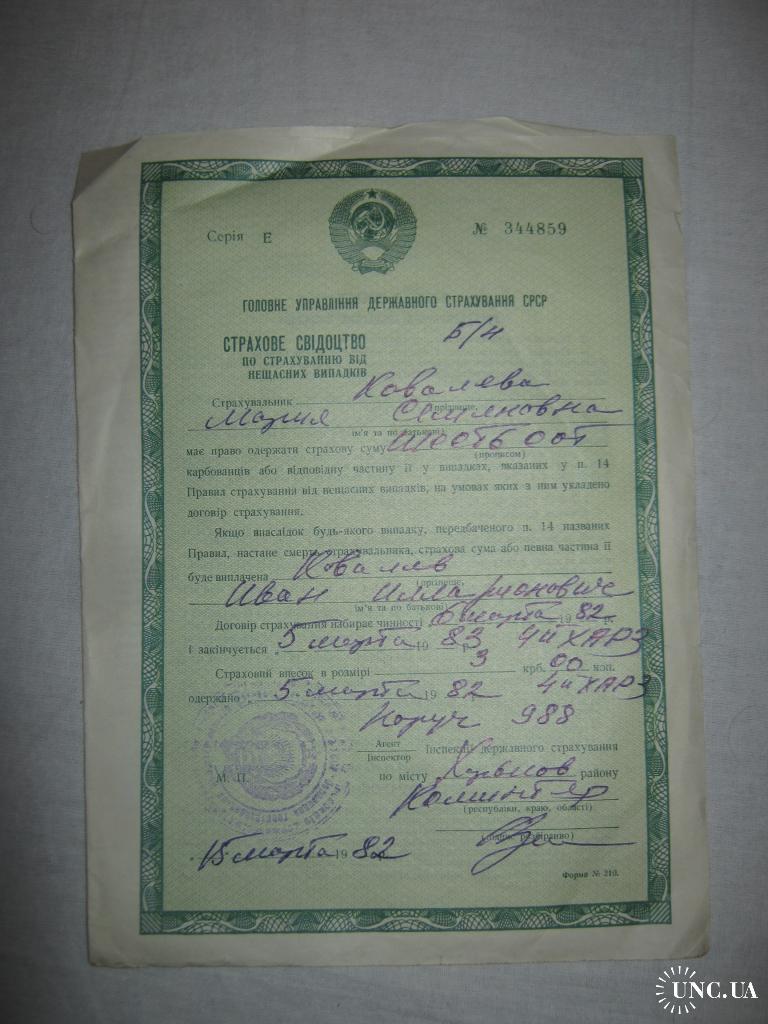 Серія Е № 344859
ГОЛОВНЕ УПРАВЛІННЯ ДЕРЖАВНОГО СТРАХУВАННЯ СРСР
СТРАХОВЕ СВІДОЦТВО Б/н
ПО СТРАХУВАННЮ ВІД
НЕЩАСНИХ ВИПАДКІВ
Страхувальник Ковалева
(прізвище,
Мария Семеновна
ім'я та по батькові)
має право одержати страхову суму
(прописом)
карбованців або відповідну частину її у випадках, вказаних у п. 14
Правил страхування від нещасних випадків, на умовах яких з ним укладено
договір страхування.
Якщо внаслідок будь-якого випадку, передбаченого п. 14 названих
Правил, настане смерть страхувальника, страхова сума або певна частина її
буде виплачена Ковалев
(прізвище,
Иван Илларионович
ім'я та по батькові)
Договір страхування набирає чинності 6 марта 1982 р.
і закінчується „5 марта 1983 р. 4и ХАРЗ
Страховий внесок в розмірі 3 крб. 00 коп.
одержано „5 марта 1982 4и ХАРЗ
988
Агент
Інспектор
Інспекції державного страхування
М. П. по місту Харьков району
Коминтер
(республіки, краю, області)
(підпис розбірливо)
15 марта 1982
Форма № 210.
UNC.UA